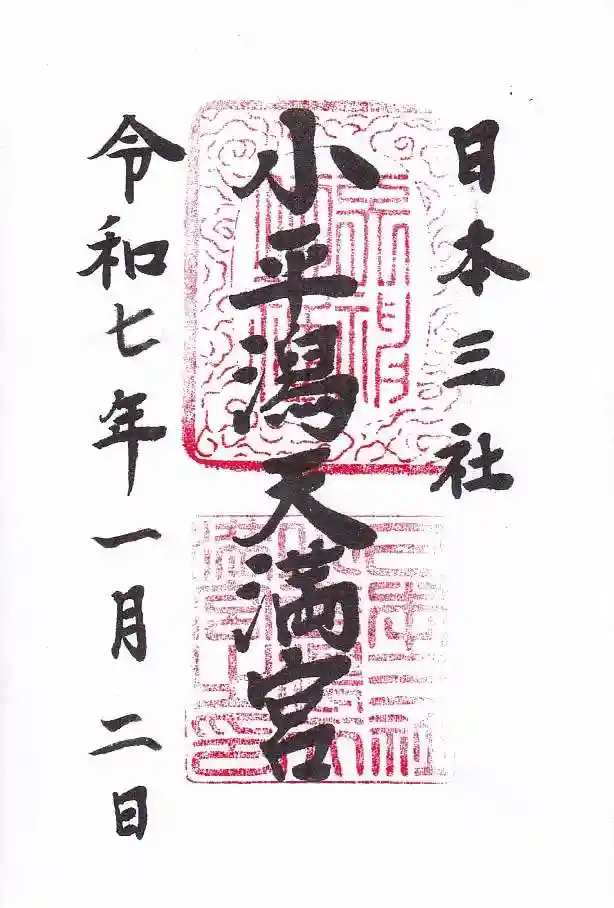 日本三社
小平潟天満宮
令和七年一月二日